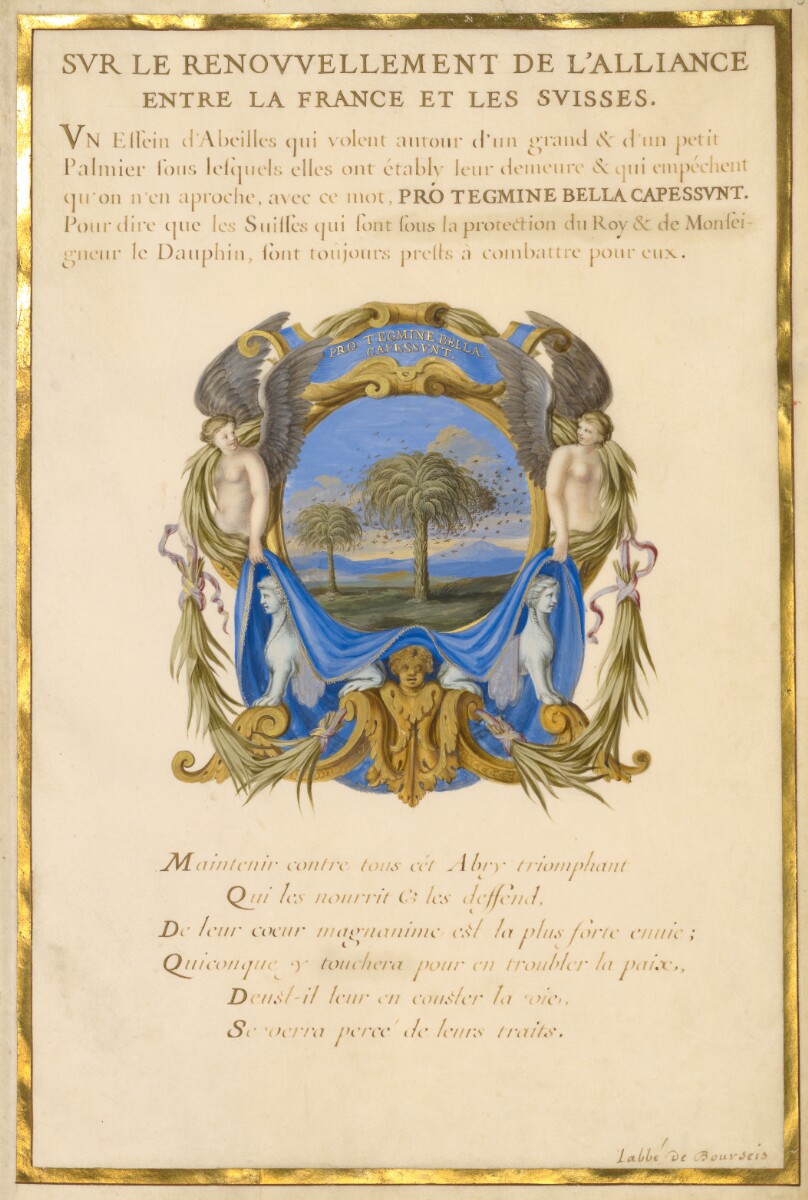 SVR LE RENOVVELLEMENT DE L'ALLIANCE
ENTRE LA FRANCE ET LES SVISSES.
VN Eſſein d'Abeilles qui volent autour d'un grand & d'un petit
Palmier ſous leſquels elles ont étably leur demeure & qui empéchent
qu'on n'en aproche, avec ce mot, PRO TEGMINE BELLA CAPESSVNT.
Pour dire que les Suiſſes qui ſont ſous la protection du Roy & de Monſei-
gneur le Dauphin, ſont toûjours preſts à combattre pour eux.
PRO TEGMINE BELLA
CAPESSVNT.
Maintenir contre tous cét Abry triomphant
Qui les nourrit & les deffend,
De leur coeur magnanime eſt la plus forte enuie ;
Quiconque y touchera pour en troubler la paix,
Deuſt-il leur en couſter la vie,
Se verra percé de leurs traits.
Labbé de Bourseis